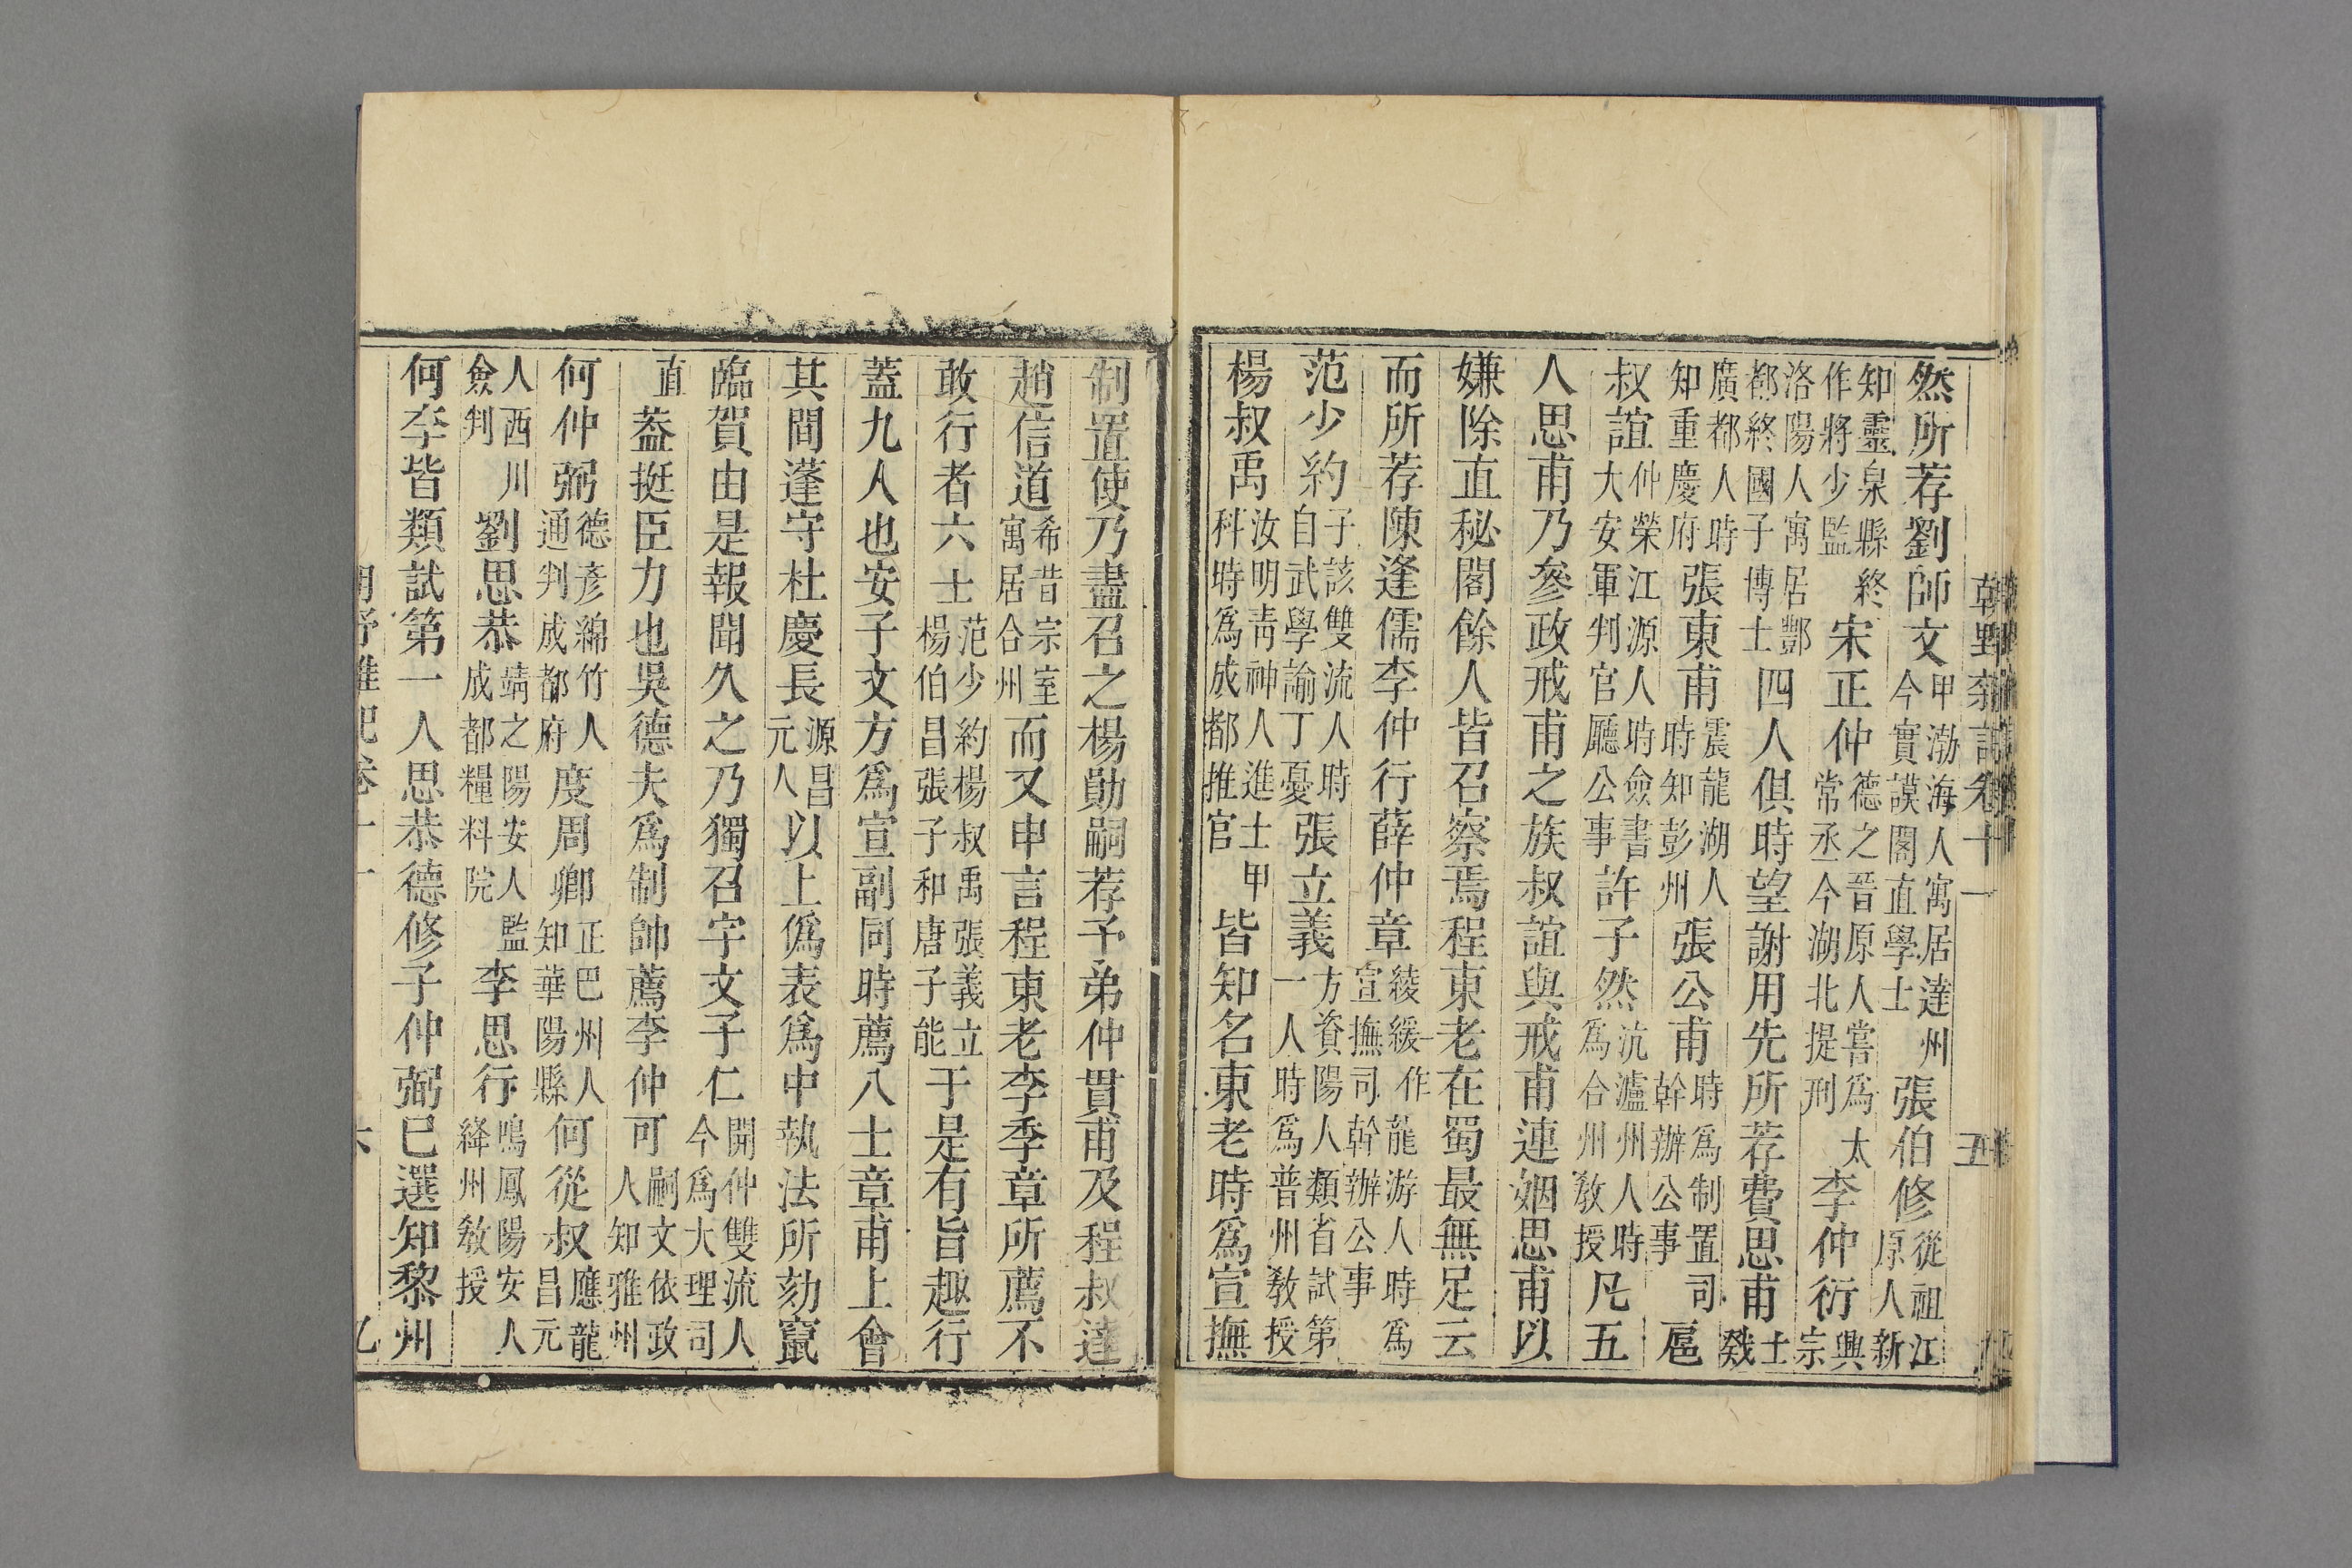 朝野雜記卷十一　五
然所荐劉師文甲渤海人寓居達州今實謨閣直學士張伯修從祖江原人新
知靈泉縣終作將少監宋正仲德之晉原人嘗爲太常丞今湖北提刑李仲衍興宗
洛陽人寓居酆都終國子博士四人俱時望謝用先所荐費思甫士戣
廣都人時知重慶府張東甫震龍湖人時知彭州張公甫時爲制置司幹辦公事扈
叔誼仲榮江源人時僉書大安軍判官廳公事許子然沆瀘州人時爲合州敎授凡五
人思甫乃參政戒甫之族叔誼與戒甫連姻思甫以
嫌除直秘閣餘人皆召察焉程東老在蜀最無足云
而所荐陳逢儒李仲行薛仲章綾緩一作龍游人時爲宣撫司幹辦公事
范少約子該雙流人時自武學諭丁憂張立義方資陽人類省試第一人時爲普州敎授
楊叔禹汝明靑神人進士甲科時爲成都推官皆知名東老時爲宣撫
制置使乃盡召之楊勛嗣荐予弟仲貫甫及程叔達
趙信道希昔宗室寓居合州而又申言程東老李季章所薦不
敢行者六士范少約楊叔禹張義立楊伯昌張子和唐子能于是有旨趣行
蓋九人也安子文方爲宣副同時薦八士章甫上會
其間蓬守杜慶長源昌元人以上僞表爲中執法所劾竄
臨賀由是報聞久之乃獨召宇文子仁開仲雙流人今爲大理司
直葢挺臣力也吳德夫爲制帥薦李仲可嗣文依政人知雅州
何仲弼德彥綿竹人通判成都府度周卿正巴州人知華陽縣何從叔應龍昌元
人西川僉判劉思恭靖之陽安人監成都糧料院李思行鳴鳳陽安人絳州敎授
何李皆類試第一人思恭德修子仲弼巳選知黎州